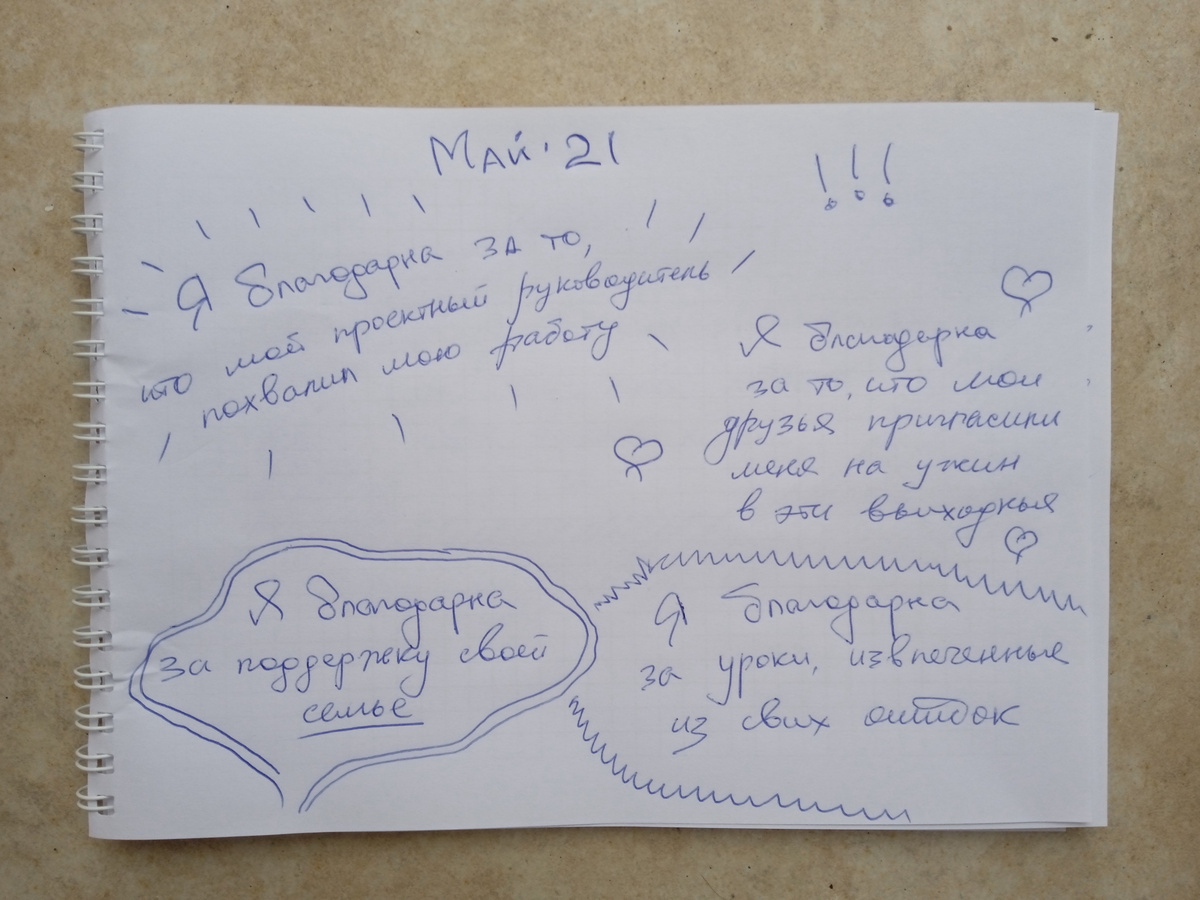 Май '21
!!!
Я благодарна за то,
что мой проектный руководитель
похвалил мою работу
Я благодарна
за то, что мои
друзья пригласили
меня на ужин
в эти выходныя
Я благодарна
за поддержку своей
семье
Я благодарна
за уроки, извлеченные
из свих ошибок